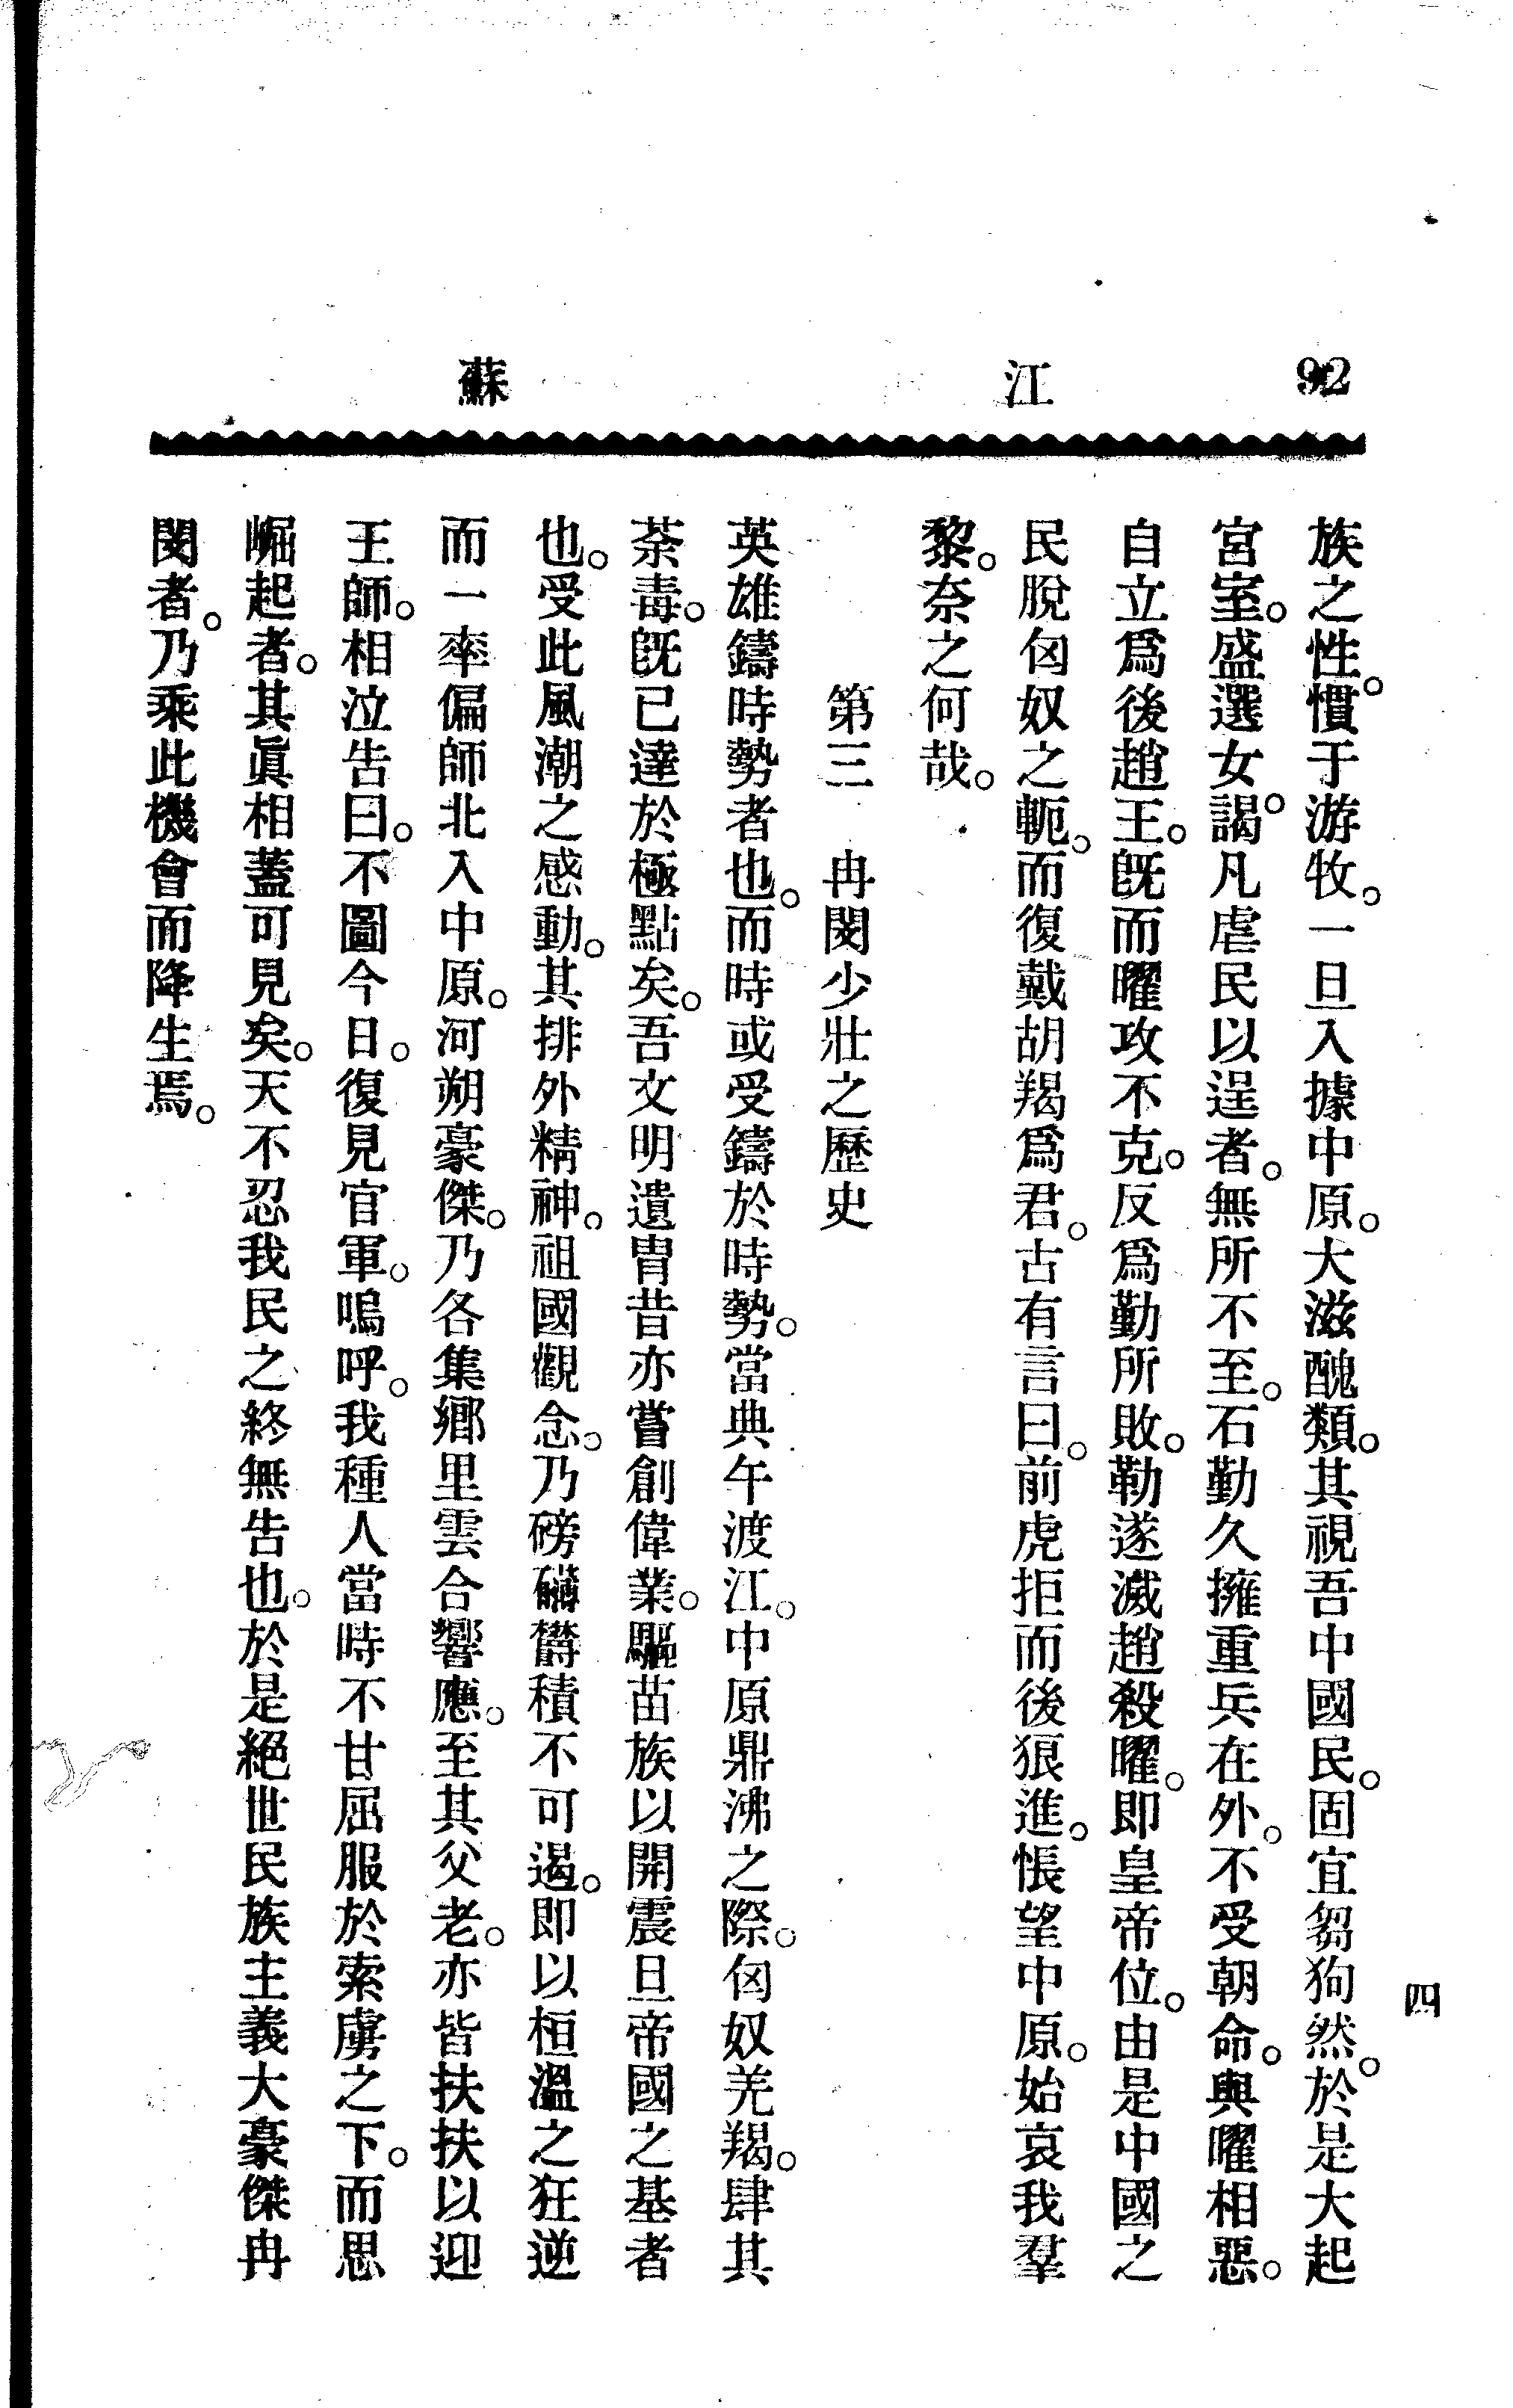 92 江 蘇
四
族之性。慣于游牧。一旦入據中原。大滋醜類。其視吾中國民。固宜芻狗然。於是大起
宮室。盛選女謁。凡虐民以逞者。無所不至。石勤久擁重兵在外。不受朝命。與曜相惡。
自立爲後趙王。旣而曜攻不克。反爲勤所敗。勒遂滅趙殺曜。即皇帝位。由是中國之
民脫匈奴之軛。而復戴胡羯爲君。古有言曰。前虎拒而後狼進。悵望中原。始哀我羣
黎。奈之何哉。
第三 冉閔少壯之歷史
英雄鑄時勢者也。而時或受鑄於時勢。當典午渡江。中原鼎沸之際。匈奴羌羯。肆其
荼毒。旣已達於極點矣。吾文明遺胄昔亦嘗創偉業。驅苗族以開震旦帝國之基者
也。受此風潮之感動。其排外精神。祖國觀念。乃磅礴欝積不可遏。即以桓溫之狂逆
而一率偏師北入中原。河朔豪傑。乃各集鄉里雲合響應。至其父老。亦皆扶扶以迎
王師。相泣告曰。不圖今日。復見官軍。嗚呼。我種人當時不甘屈服於索虜之下。而思
崛起者。其眞相蓋可見矣。天不忍我民之終無告也。於是絕世民族主義大豪傑冉
閔者。乃乘此機會而降生焉。